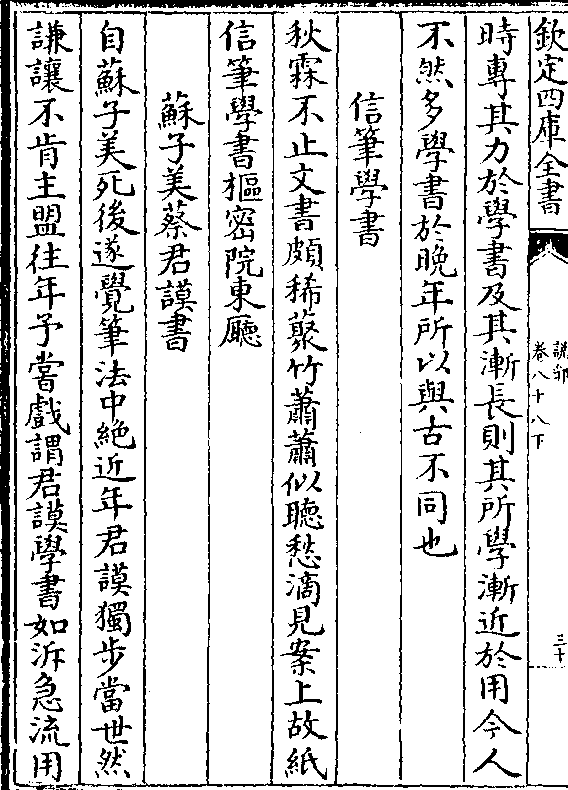 欽定四庫全書
說郛
卷八十八下
三十
時專其力於學書及其漸長則其所學漸近於用今人
不然多學書於晚年所以與古不同也
信筆學書
秋霖不止文書頗稀藂竹蕭蕭似聽愁滴見案上故紙
信筆學書樞密院東廳
蘇子美蔡君謨書
自蘇子美死後遂覺筆法中絶近年君謨獨步當世然
謙讓不肯主盟往年予嘗戲謂君謨學書如泝急流用